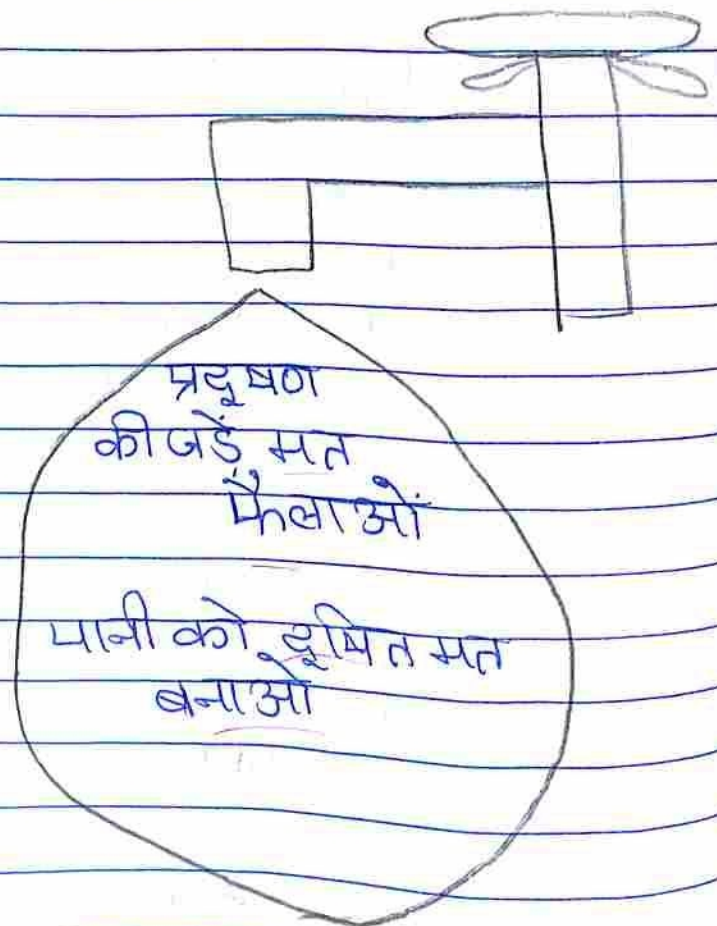 प्रदूषण
की जड़ें मत
फैलाओं
पानी को दूषित मत
बनाओं